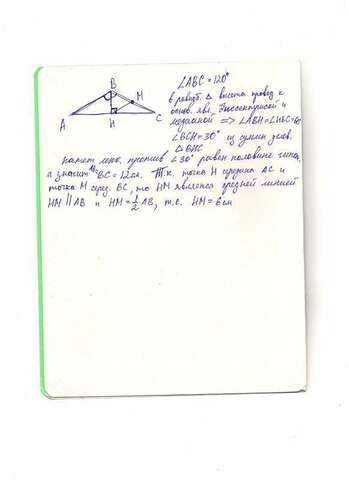 B
M
A
H
C
∠ABC = 120°
в равноб. △ высота провед к
основ. явл. биссектрисой и
медианой => ∠ABH = ∠HBC = 60°
∠BCH = 30° из суммы углов.
△BHC
катет леж. против ∠30° равен половине гипот.
а значит BC = 12см. Т.к. точка H середина AC и
точка M серед. BC, то HM является средней линией
HM || AB и HM = 1/2 AB, т.е. HM = 6см